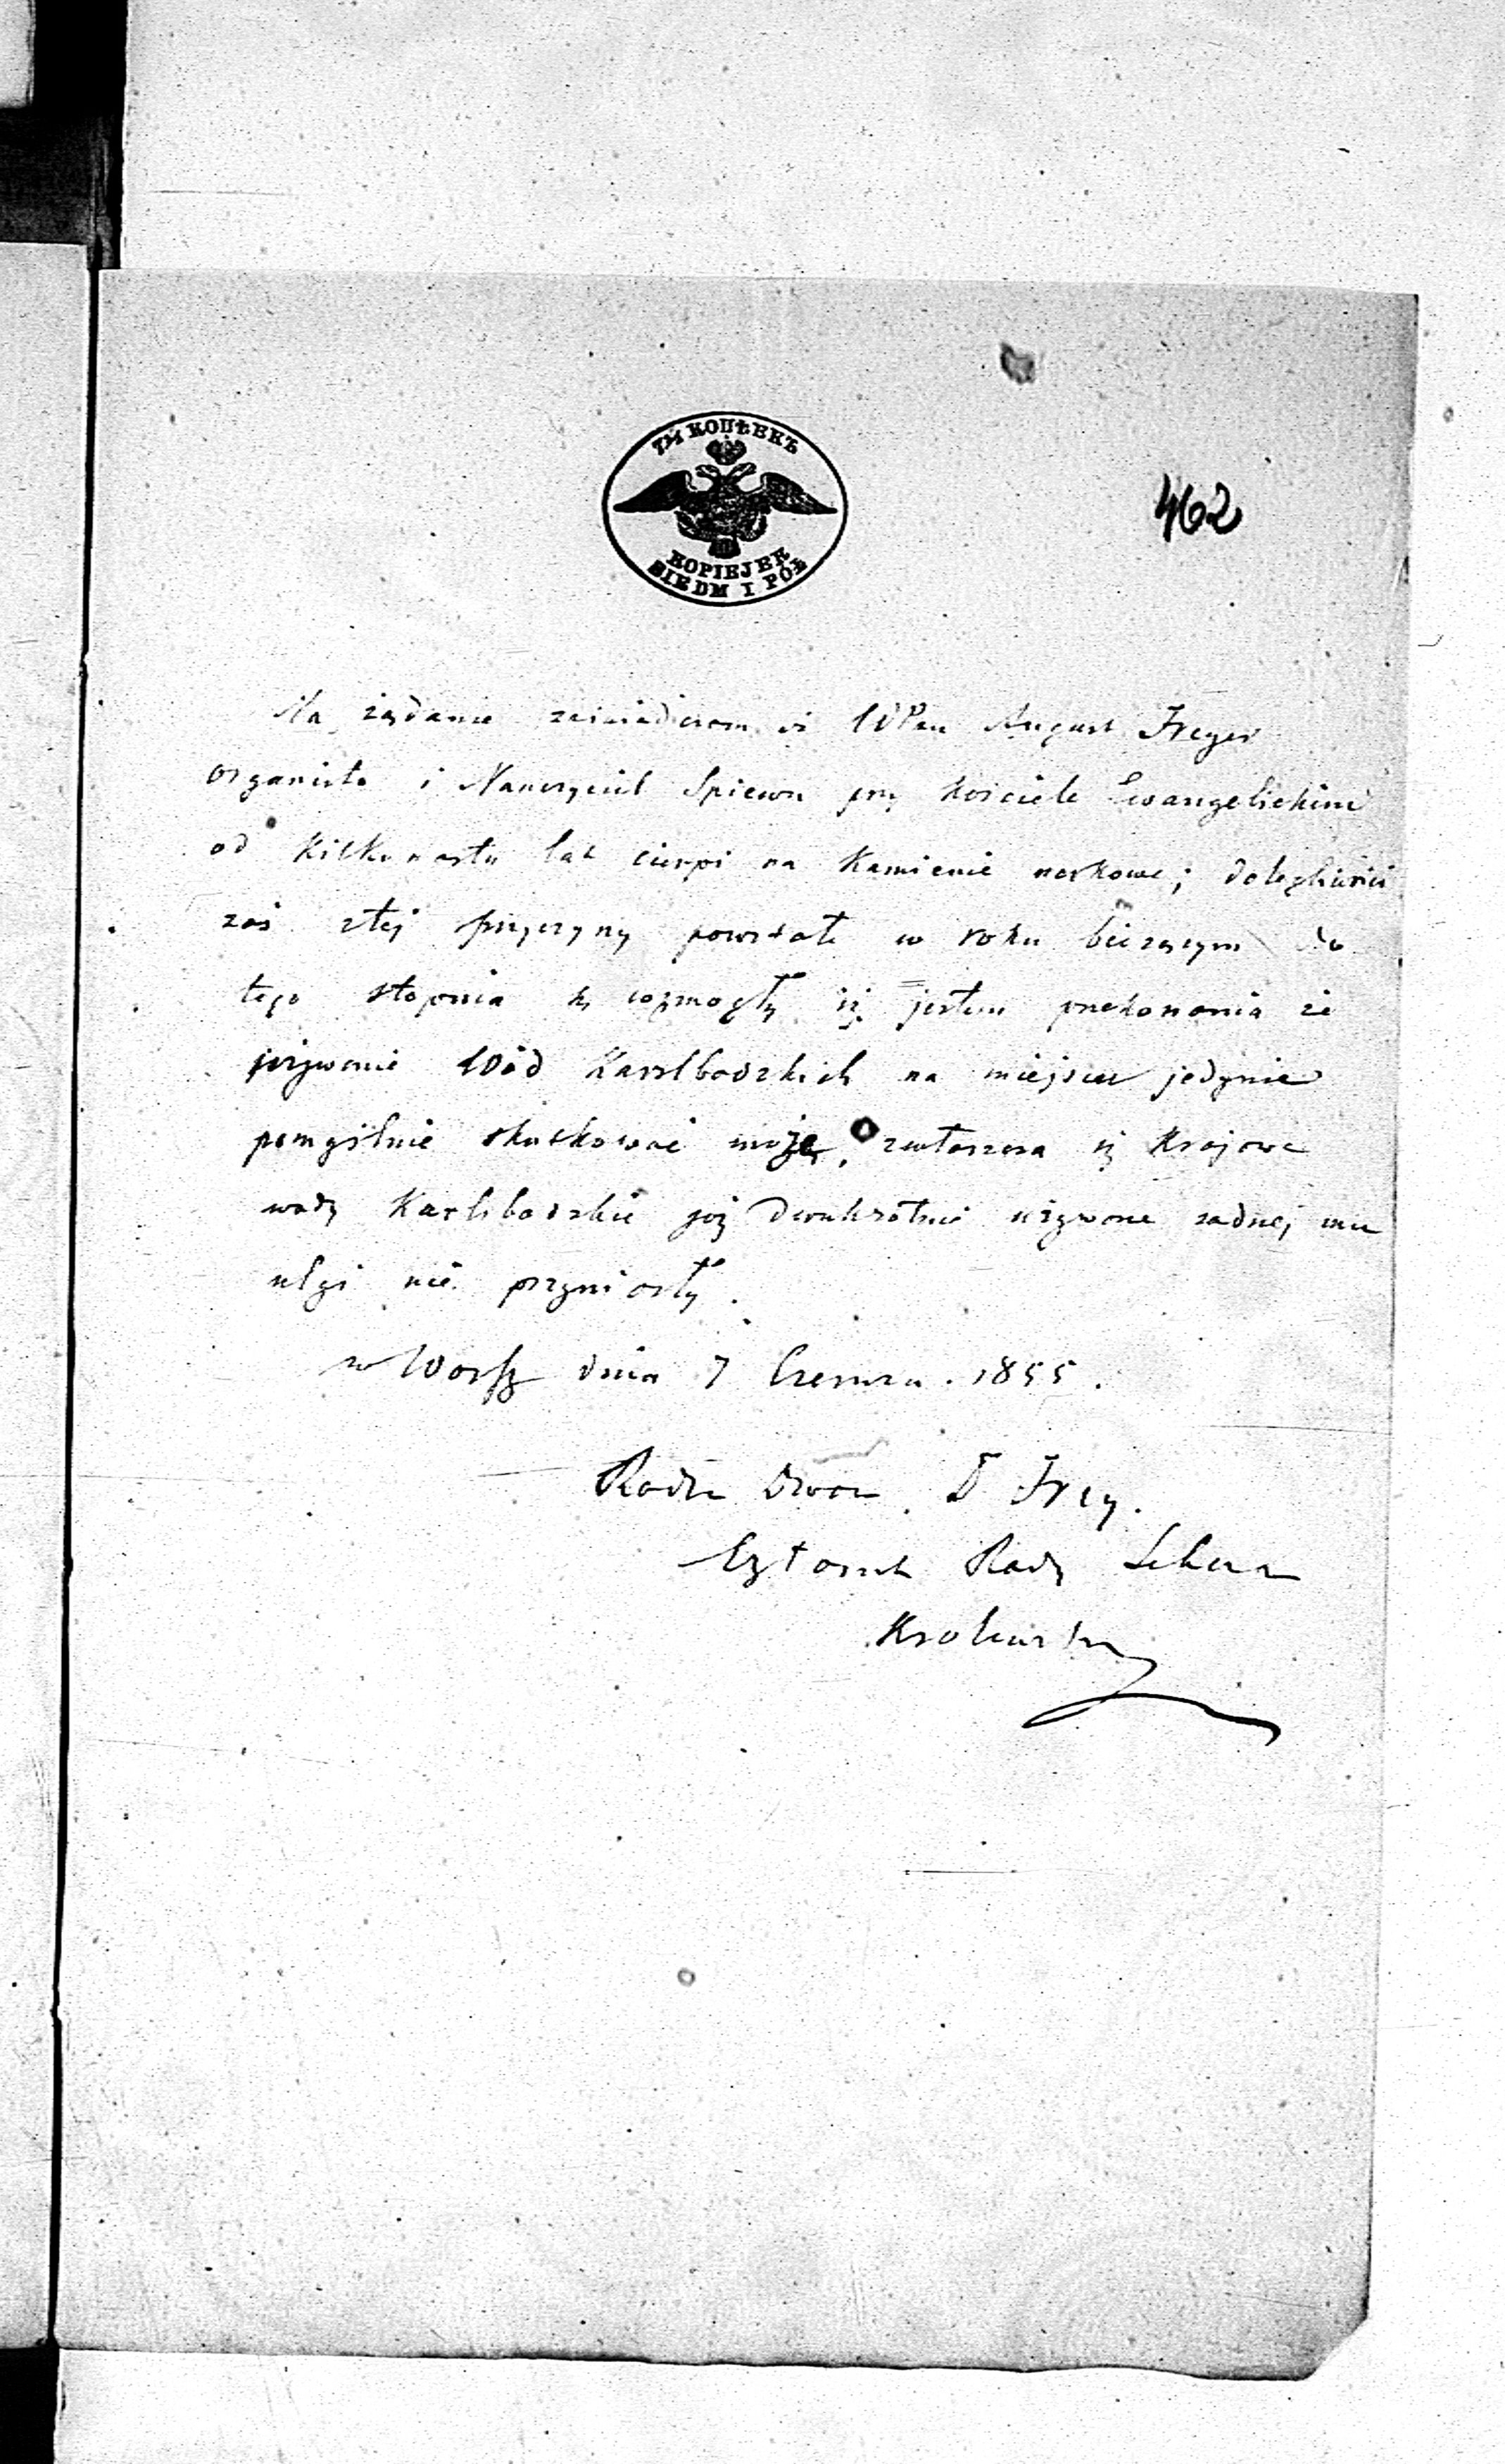 7½ КОПѢЕКЪ
KOPIEJEK
SIEDM I PÓŁ
462
Na żądanie zaświadczam iż WPan August Freyer
organista i Nauczyciel Spiewu przy kościele Ewangelickim
od kilkunastu lat cierpi na kamienie nerkowe; dolegliwości
zaś z tej przyczyny powstałe w roku bieżącym do
tego stopnia się wzmogły iż jestem przekonania że
używanie Wód Karlsbadzkich na miejscu jedynie
pomyślnie skutkować może, zwłaszcza iż Krajowe
wody Karlsbadzkie już dwukrotnie używane żadnej mu
ulgi nie przyniosły.
w Warsz dnia 7 Czerwca. 1855.
Radca Dwor. D Frey.
Członek Rady Lekar